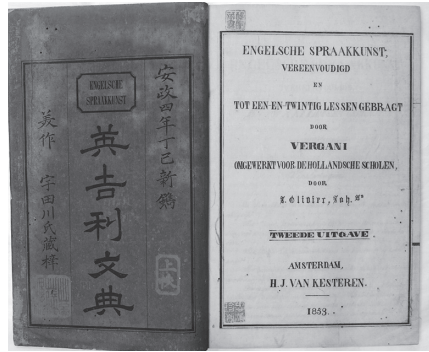 安政四年丁巳新鐫
ENGELSCHE
SPRAAKKUNST
英吉利文典
美作 宇田川氏藏梓
ENGELSCHE SPRAAKKUNST,
VEREENVOUDIGD
EN
TOT EEN-EN-TWINTIG LESSEN GEBRAGT
DOOR
VERGANI
OMGEWERKT VOOR DE HOLLANDSCHE SCHOLEN,
DOOR
Olivier, Joh. Zn
TWEEDE UITGAVE
AMSTERDAM,
H.J. VAN KESTEREN.
1853.